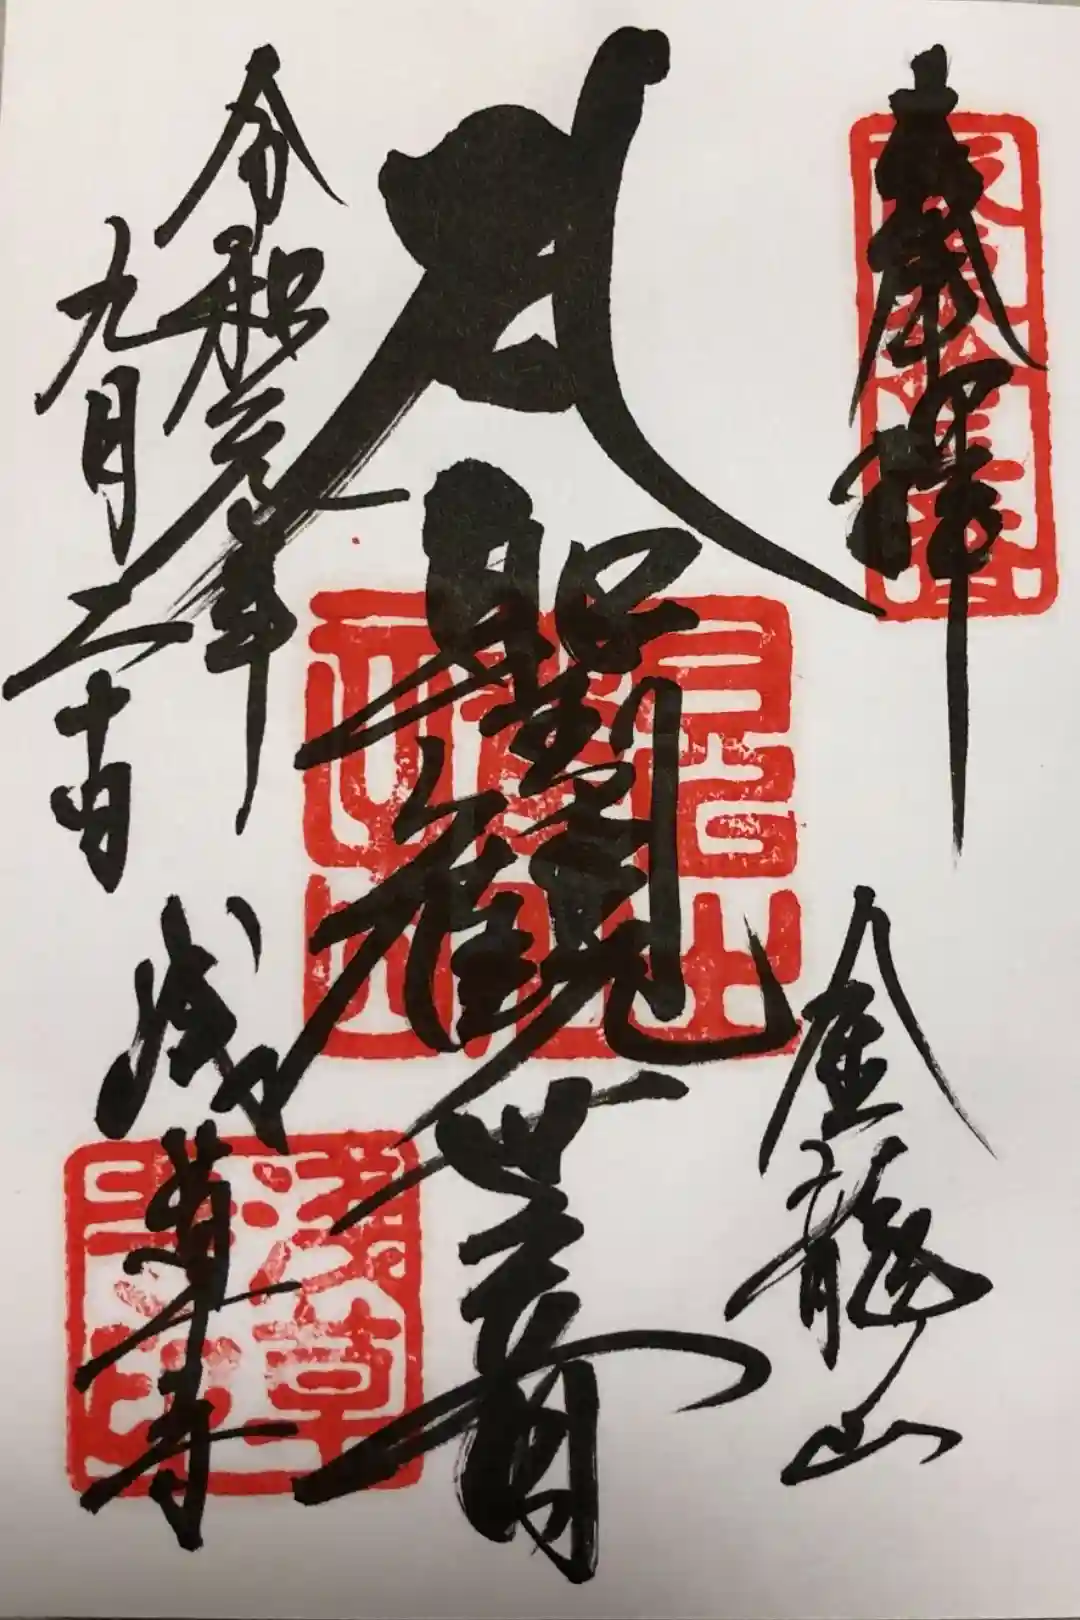 奉拝
金龍山
聖観世音
令和元年
九月二十日
浅草寺
浅草寺